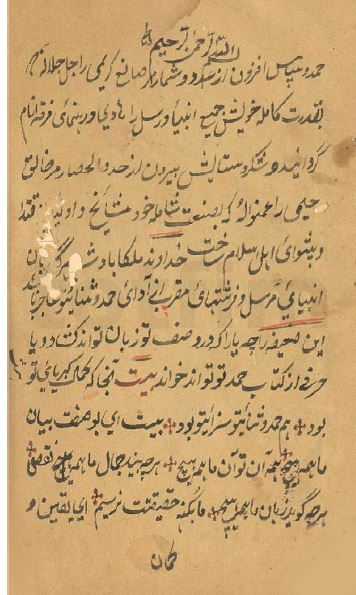 بسم الله الرحمن الرحیم
حمد و سپاس افزون از عدد و شمار مر صانع کریمی را جل جلاله که
بقدرت کامله خویش جمیع انبیا و رسل را هادی و رهنمای فرقه انام
گردانید و شکر و ستایش بیرون از حد و الحصار مر خالق
رحیمی را عم نواله که بصنعت شامله خود مشایخ و اولیا
و پیشوای اهل اسلام ساخت خداوند ملکا بادشا
انبیای مرسل و فرشتهای مقرب از ادای حمد و ثنای تو عاجز
این ضعیف را چه یارا که در وصف تو زبان تواند کشد و یا
حرفی از کتاب حمد تو تواند خواند بیت آنجا که کمال کبریای تو
بود هم حمد و ثنای تو سزای تو بود بیت ای بوصفت بیان
ما همه هیچ همه آن تو آن ما همه هیچ هرچه بیند جمال ما همه هیچ نقص
هرچه گوید زبان ما همه هیچ ما بکنه حقیقتت نرسیم ای یقین و
کمان